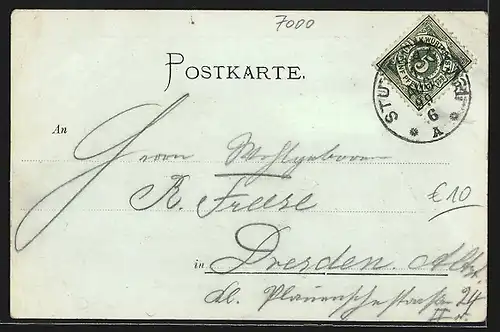 7000
POSTKARTE.
STUT
6
A
An
Herrn Wohlgeboren
R. Freese
€10
in Dresden. Altst.
kl. Plauenschestrasse 24
II r.